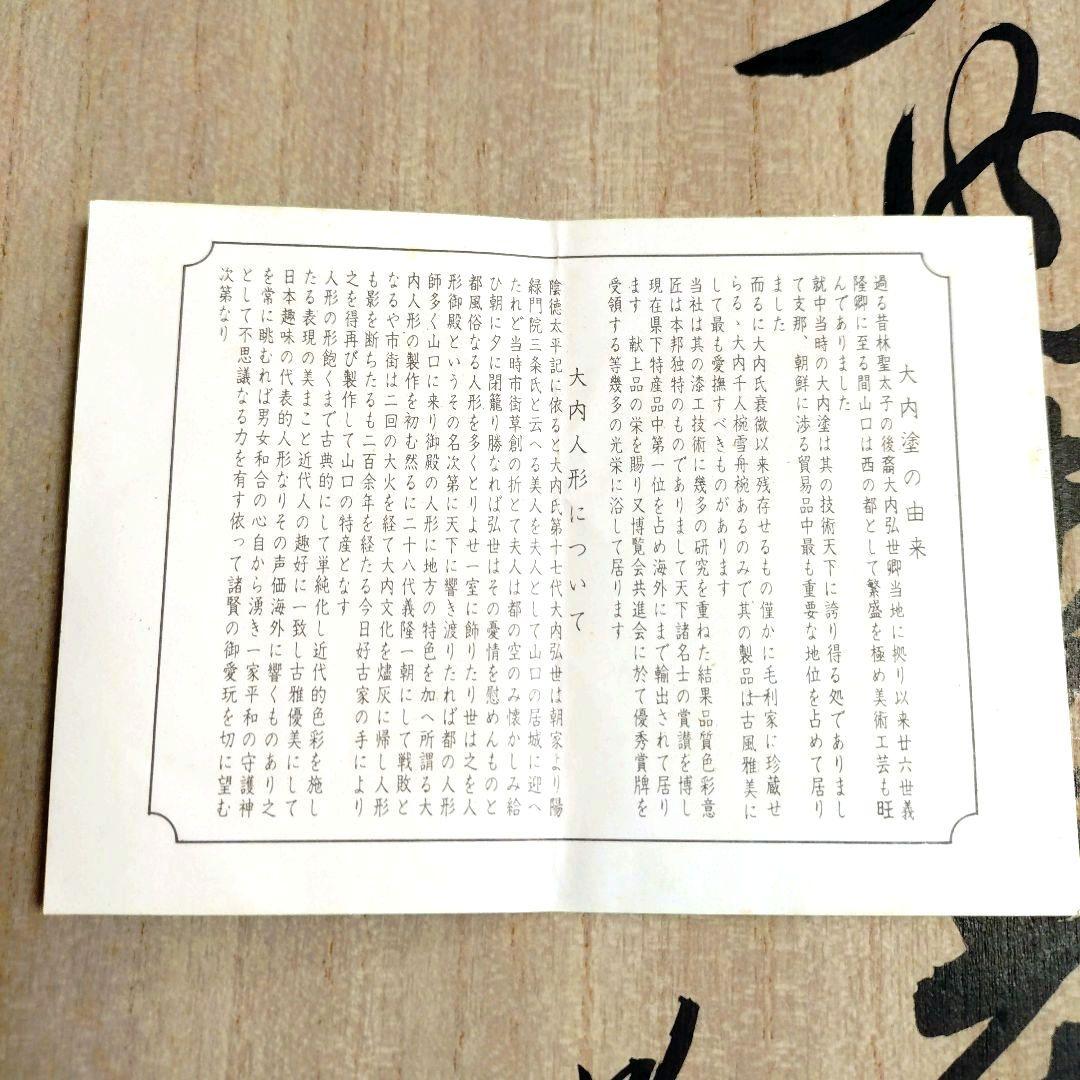 大内塗の由来
過る昔林聖太子の後裔大内弘世卿当地に拠り以来廿六世義
隆卿に至る間山口は西の都として繁盛を極め美術工芸も旺
んでありました
就中当時の大内塗は其の技術天下に誇り得る処でありまし
て支那、朝鮮に渉る貿易品中最も重要な地位を占めて居り
ました
而るに大内氏衰微以来残存せるもの僅かに毛利家に珍蔵せ
らるゝ大内千人椀雪舟椀あるのみで其の製品は古風雅美に
して最も愛撫すべきものがあります
当社は其の漆工技術に幾多の研究を重ねた結果品質色彩意
匠は本邦独特のものでありまして天下諸名士の賞讃を博し
現在県下特産品中第一位を占め海外にまで輸出されて居り
ます　献上品の栄を賜り又博覧会共進会に於て優秀賞牌を
受領する等幾多の光栄に浴して居ります
大内人形について
陰徳太平記に依ると大内氏第十七代大内弘世は朝家より陽
緑門院三条氏と云へる美人を夫人として山口の居城に迎へ
たれど当時市街草創の折とて夫人は都の空のみ懐かしみ給
ひ朝に夕に閉籠り勝なれば弘世はその憂情を慰めんものと
都風俗なる人形を多くとりよせ一室に飾りたり世は之を人
形御殿というその名次第に天下に響き渡りたれば都の人形
師多く山口に来り御殿の人形に地方の特色を加へ所謂る大
内人形の製作を初む然るに二十八代義隆一朝にして戦敗と
なるや市街は二回の大火を経て大内文化を燼灰に帰し人形
も影を断ちたるも二百余年を経たる今日好古家の手により
之を得再び製作して山口の特産となす
人形の形飽くまで古典的にして単純化し近代的色彩を施し
たる表現の美まこと近代人の趣好に一致し古雅優美にして
日本趣味の代表的人形なりその声価海外に響くものあり之
を常に眺むれば男女和合の心自から湧き一家平和の守護神
として不思議なる力を有す依って諸賢の御愛玩を切に望む
次第なり